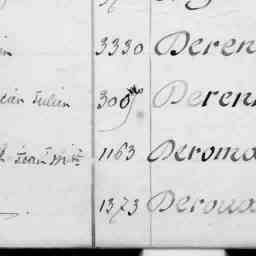 in 3330 Deren
Julien 300 Deren
Jean 1163 Deroma
1373 Deroux